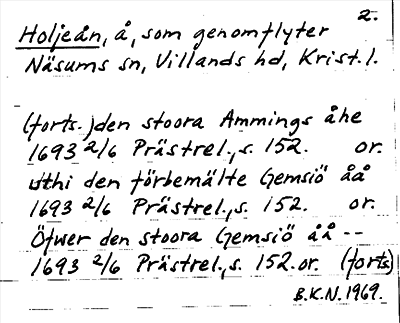 2.
Holjeån, å, som genomflyter
Näsums sn, Villands hd, Krist. l.
(forts.) den stoora Ammings åhe
1693 2/6 Prästrel., s. 152. or.
uthi den förbemälte Gemsiö åå
1693 2/6 Prästrel., s. 152. or.
Öfwer den stoora Gemsiö åå --
1693 2/6 Prästrel., s. 152. or. (forts.)
B.K.N. 1969.